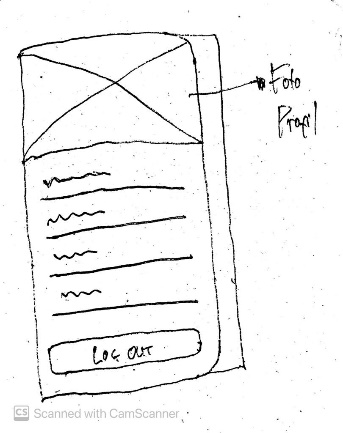 Foto
Profil
LOG OUT
CS Scanned with CamScanner